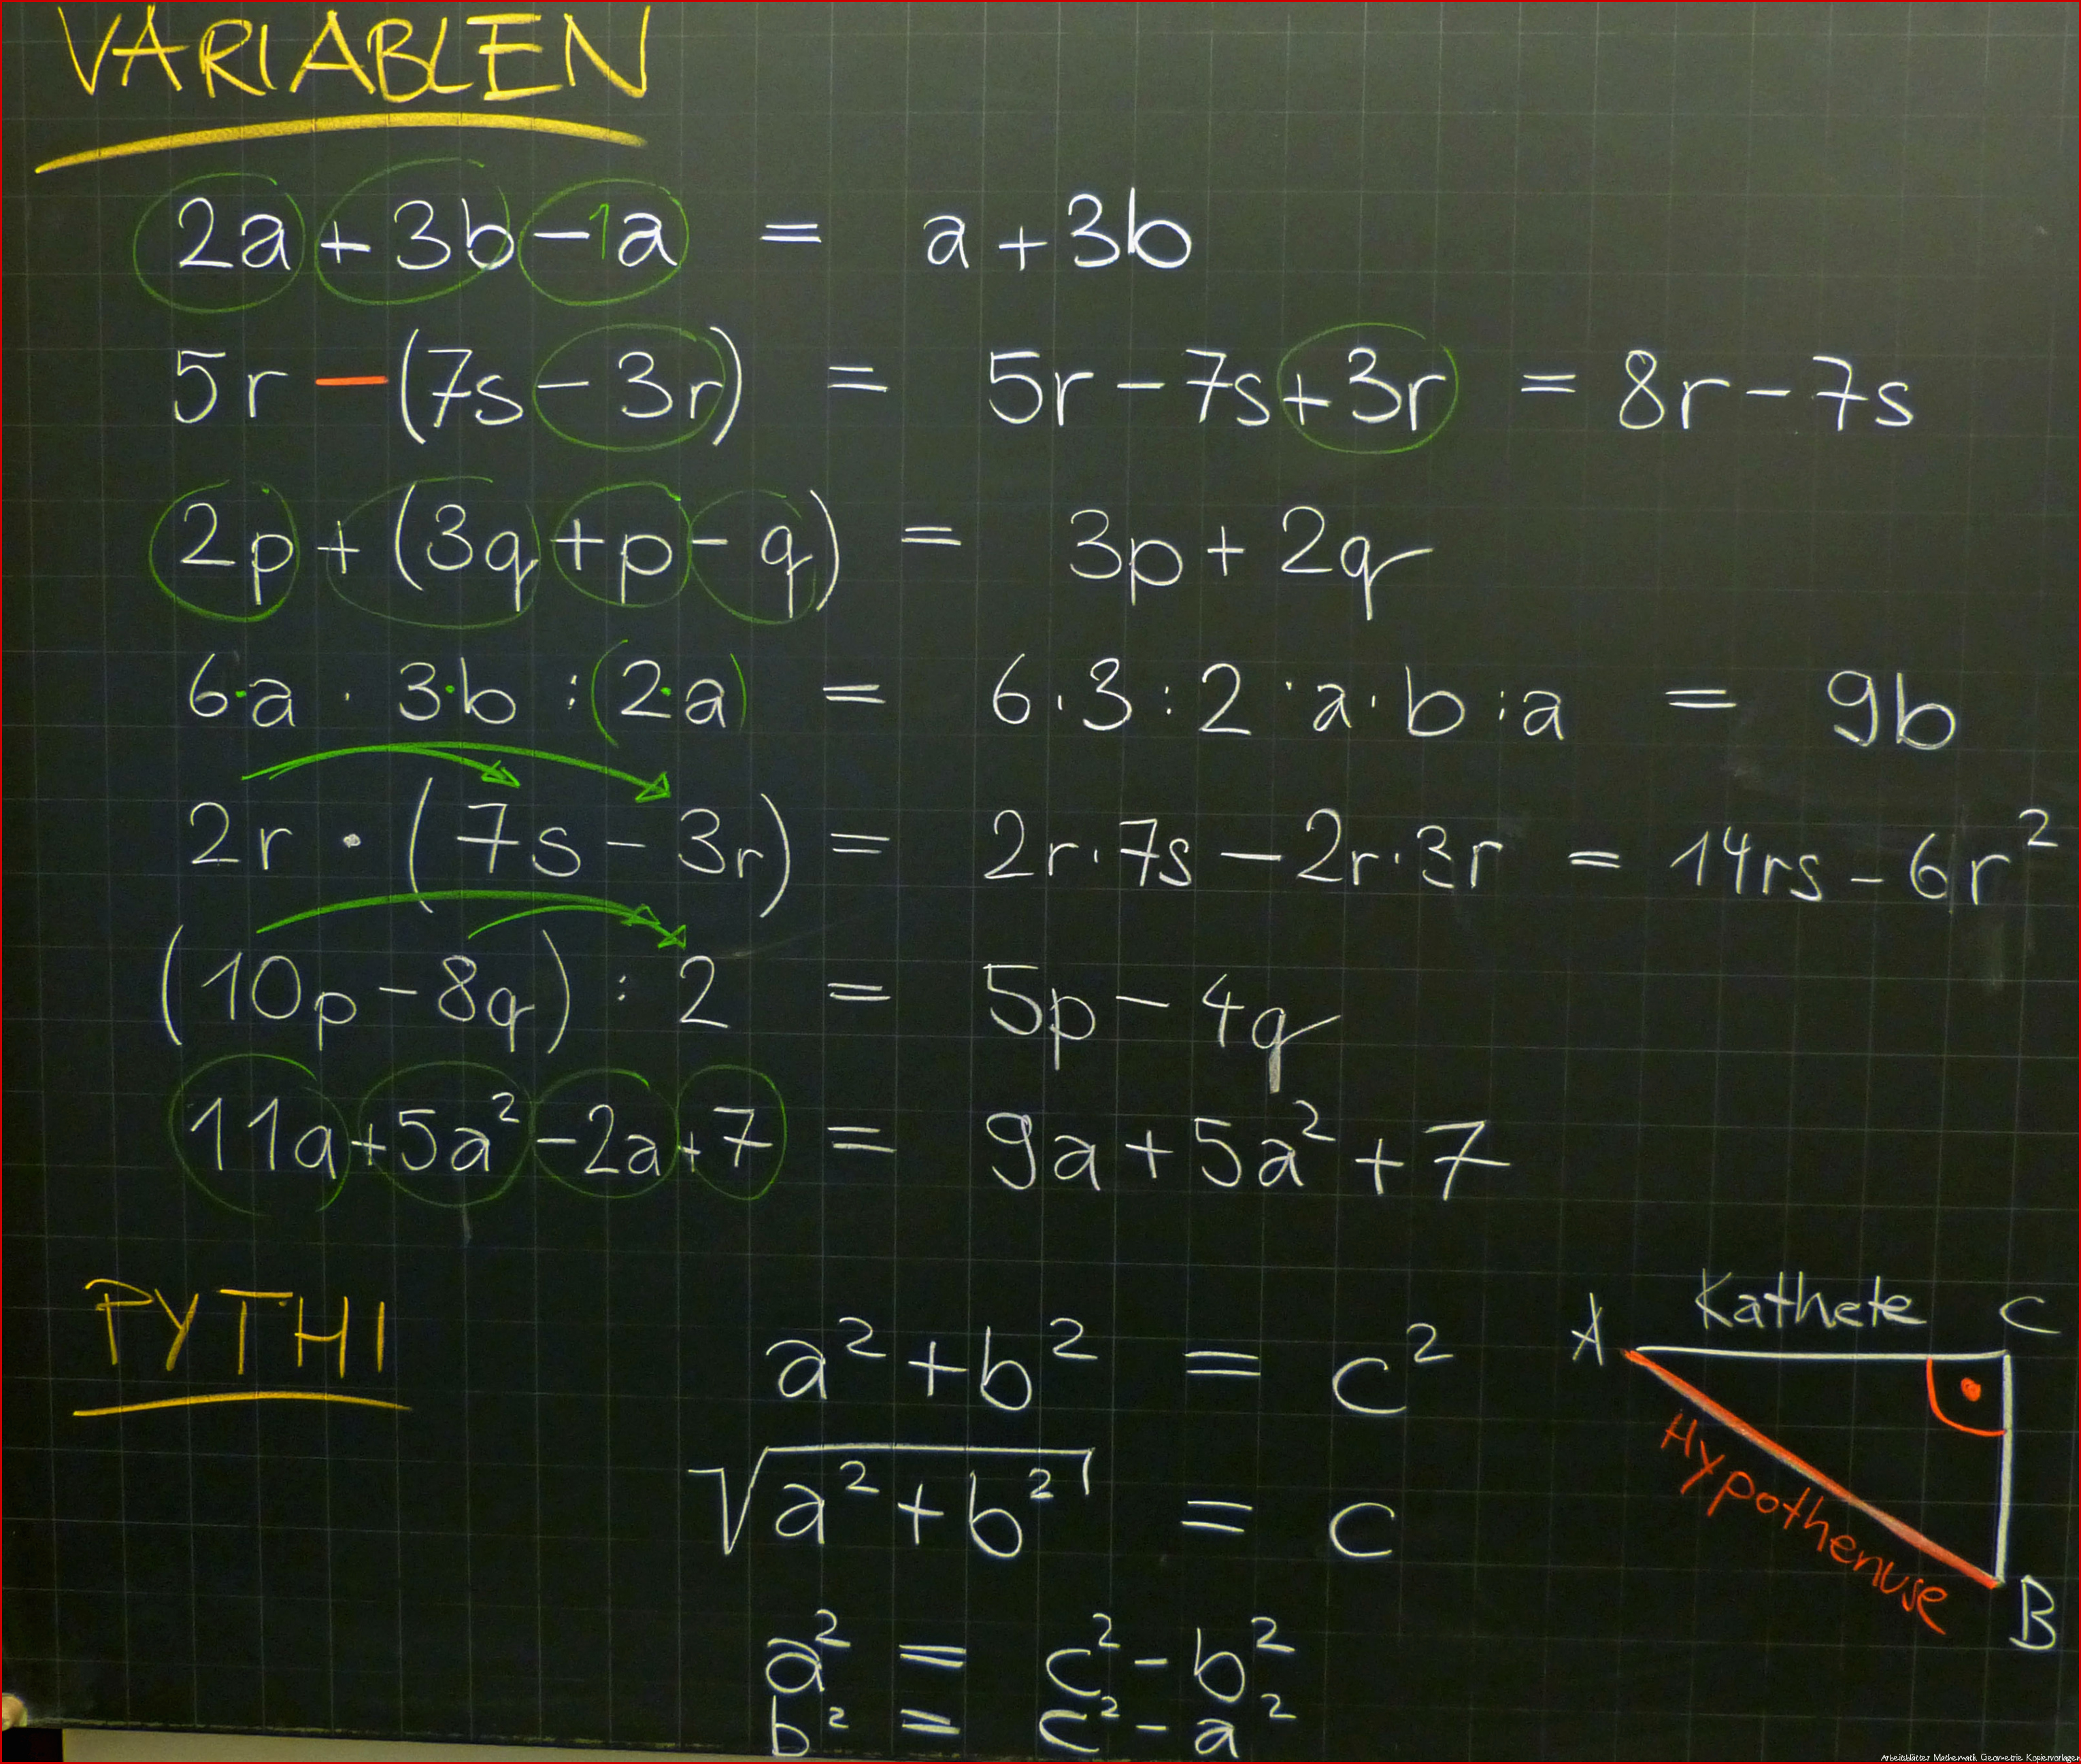 VARIABLEN
2a + 3b - 1a = a + 3b
5r - (7s - 3r) = 5r - 7s + 3r = 8r - 7s
2p + (3q + p - q) = 3p + 2q
6·a · 3·b : (2·a) = 6·3:2·a·b:a = 9b
2r · (7s - 3r) = 2r·7s - 2r·3r = 14rs - 6r²
(10p - 8q) : 2 = 5p - 4q
11a + 5a² - 2a + 7 = 9a + 5a² + 7
PYTHI
a² + b² = c²
√(a² + b²) = c
a² = c² - b²
b² = c² - a²
A Kathete C
Hypothenuse
B
Arbeitsblätter Mathematik Geometrie Kopiervorlagen